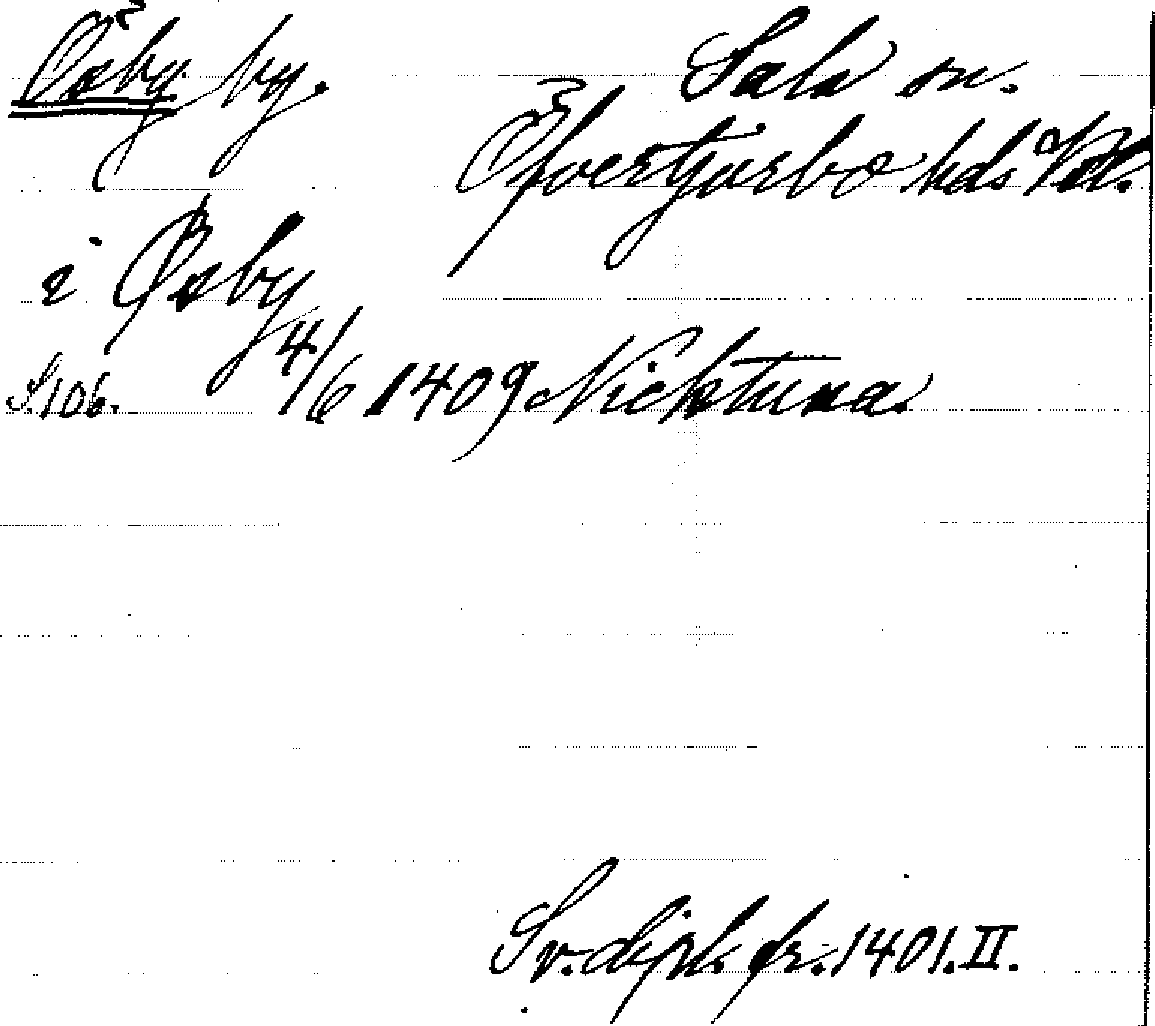 Ösby by. Sala sn.
Öfvertjurbo hds Vstl.
i Øsby
S. 106. 4/6 1409 Nicktuna.
Sv. dipl. fr. 1401. II.